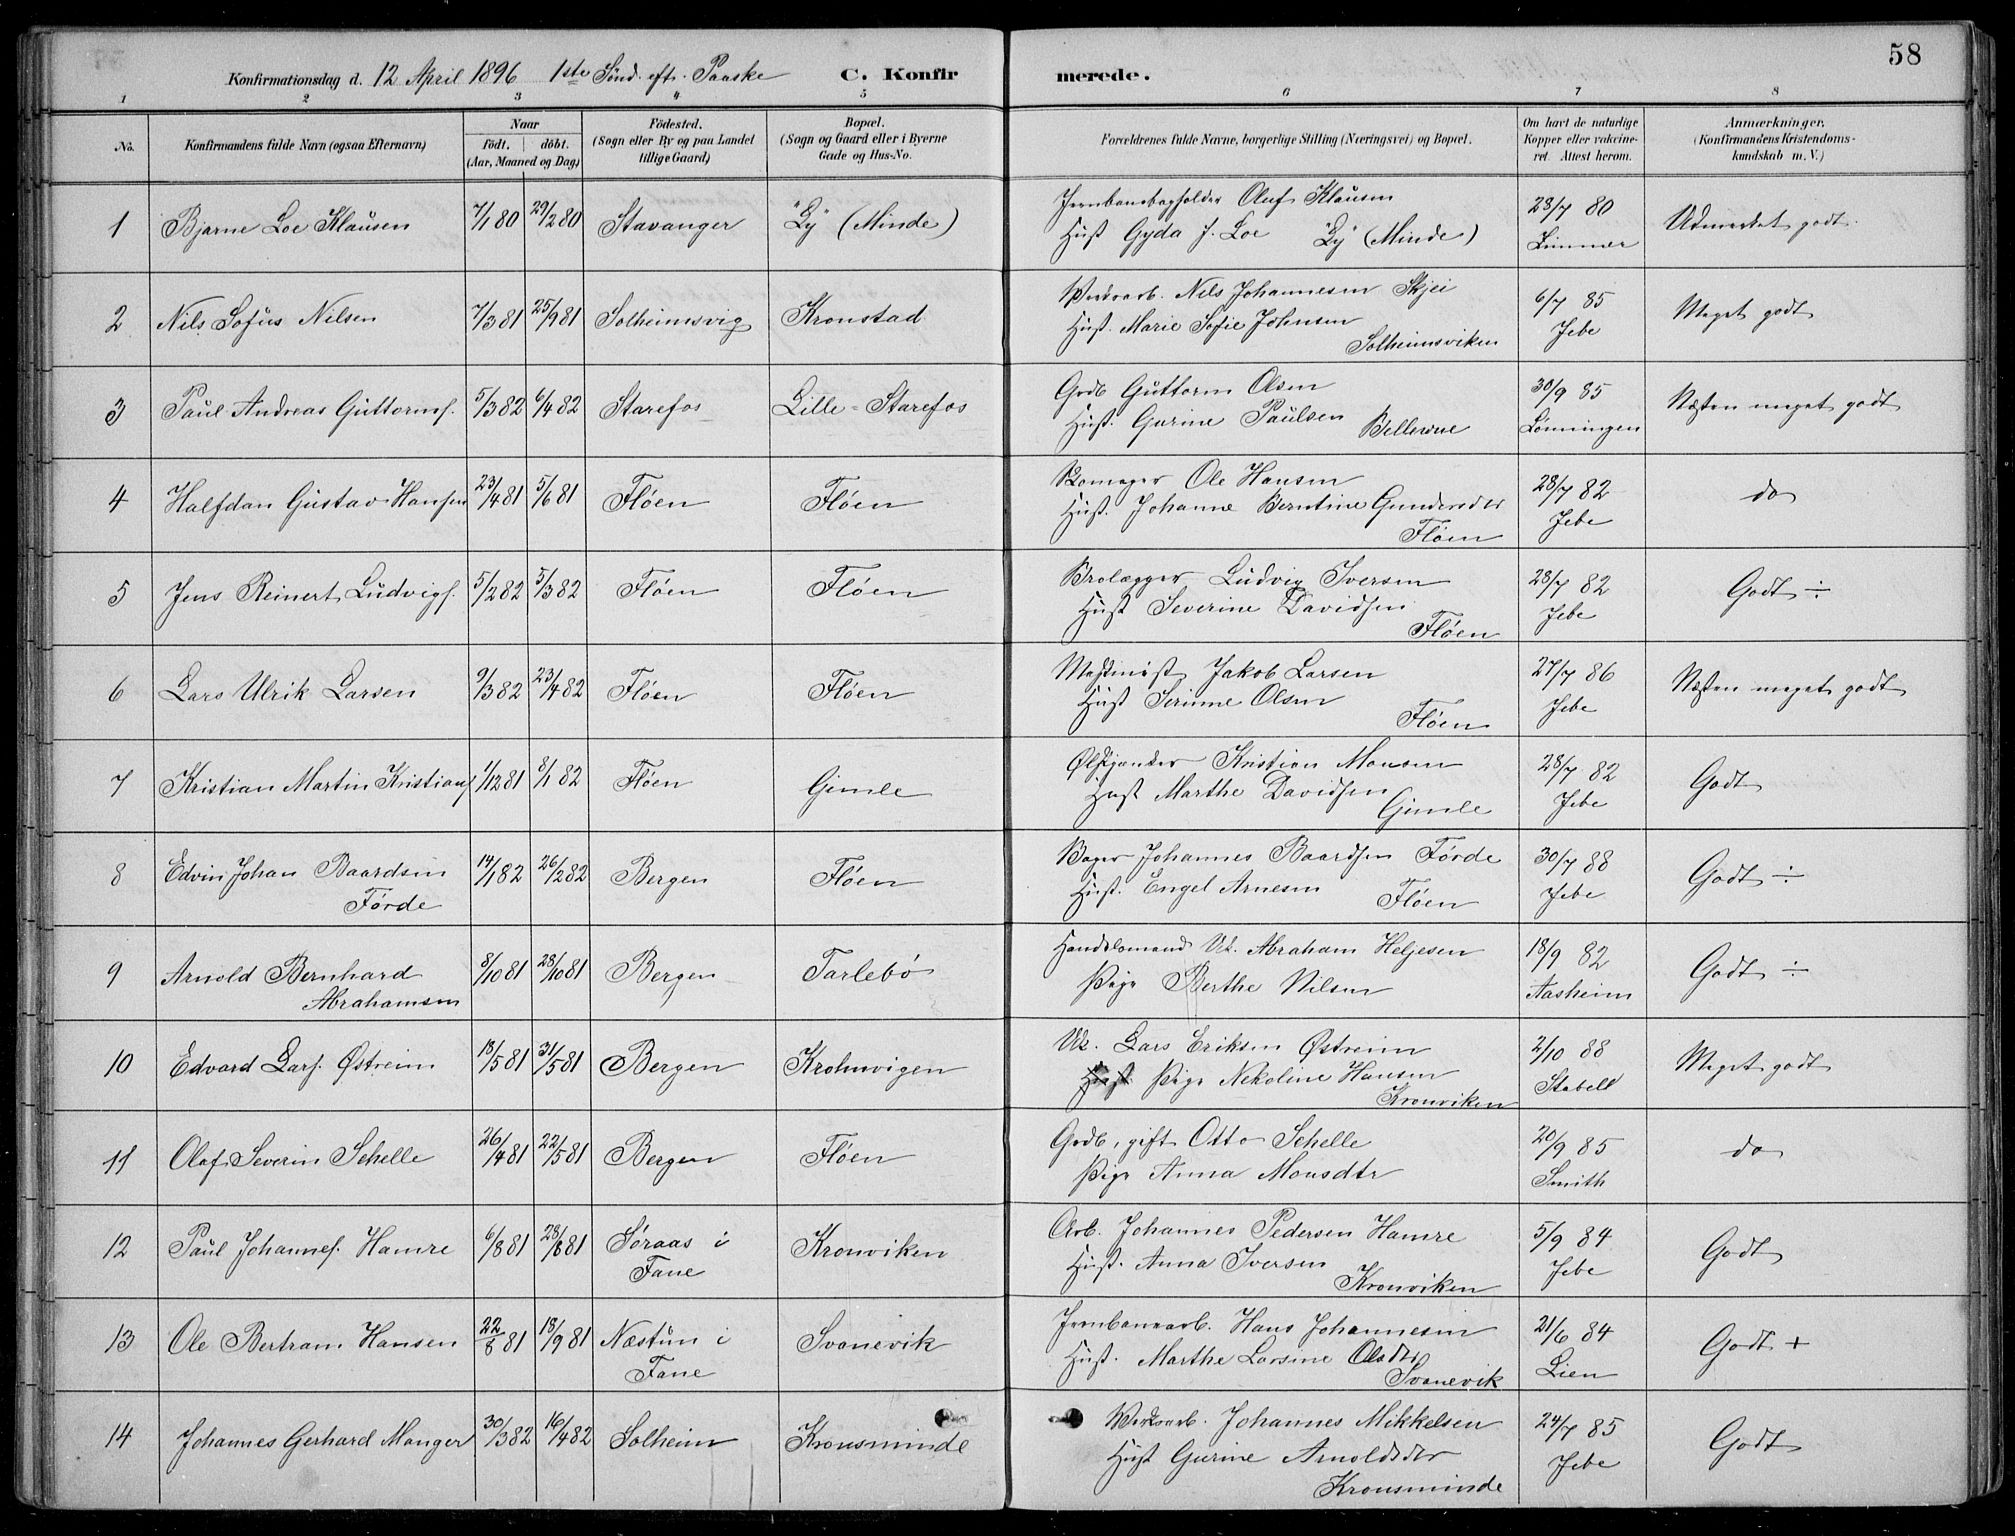 58
Konfirmationsdag d. 12 April 1896 1ste Sönd. eft. Paaske C. Konfirmerede.
1 2 3 4 5 6 7 8
No. Konfirmandens fulde Navn (ogsaa Efternavn) Naar födt. döbt. (Aar, Maaned og Dag) Födested. (Sogn eller By og paa Landet tillige Gaard) Bopæl. (Sogn og Gaard eller i Byerne Gade og Hus-No. Forældrenes fulde Navne, borgerlige Stilling (Næringsvei) og Bopæl. Om havt de naturlige Kopper eller vakcineret. Attest herom. Anmærkninger. (Konfirmandens Kristendomskundskab m. V.)
1 Bjarne Loe Klausen 7/1 80 29/2 80 Stavanger "Ly" (Minde) Jernbanebogholder Oluf Klausen 28/7 80 Udmerket godt.
Hust Gyda f. Loe "Ly" (Minde) Zimmer
2 Nils Sofus Nilsen 7/3 81 25/9 81 Solheimsvig Kronstad Verksarb. Nils Johannesen Skjei 6/7 85 Meget godt
Hust. Marie Sofie Johnsen Jebe
Solheimsviken
3 Paul Andreas Guttorms. 5/3 82 6/4 82 Starefos Lille-Starefos Grdb Guttorm Olsen 30/9 85 Næsten meget godt
Hust. Gurine Paulsen Lønningen
Bellevue
4 Halfdan Gustav Hansen 23/4 81 5/6 81 Fløen Fløen Skomager Ole Hansen 28/7 82 do
Hust. Johanne Berntine Gundersdtr Jebe
Fløen
5 Jens Reinert Ludvigs. 5/2 82 5/3 82 Fløen Fløen Brolægger Ludvig Iversen 28/7 82 Godt ÷
Hust Severine Davidsen Jebe
Fløen
6 Lars Ulrik Larsen 9/3 82 23/4 82 Fløen Fløen Jakob Larsen 27/7 86 Næsten meget godt
Hust Serinne Olsen Jebe
Fløen
7 Kristian Martin Kristians 1/12 81 8/1 82 Fløen Gimle Ølskjænker Kristian Monsen 28/7 82 Godt
Hust Marthe Davidsen Jebe
Gimle
8 Edvin Johan Baardsen 14/1 82 26/2 82 Bergen Fløen Bager Johannes Baardsen Førde 30/7 88 Godt ÷
Førde Hust. Engel Arnesen Fløen Jebe
9 Arnold Bernhard 8/10 81 28/10 81 Bergen Tarlebø Handelsmand Uk. Abraham Heljesen 18/9 82 Godt ÷
Abrahamsen Pige Berthe Nilsen Aasheim
10 Edvard Lars. Østreim 18/5 81 31/5 81 Bergen Krohnvigen Uk. Lars Eriksen Østreim 2/10 88 Meget godt
Hust. Pige Nekoline Hansen Stabell
Kronviken
11 Olaf Severin Schelle 26/4 81 22/5 81 Bergen Fløen Grdb, gift Otto Schelle 20/9 85 do
Pige Anna Monsdtr Smith
12 Paul Johannes. Hamre 6/8 81 28/8 81 Søraas i Kronviken Arb. Johannes Pedersen Hamre 5/9 84 Godt
Fane Hust. Anna Iversen Jebe
Kronviken
13 Ole Bertram Hansen 22/8 81 18/9 81 Næstun i Svanevik Jernbanearb. Hans Johannesen 21/6 84 Godt +
Fane Hust. Marthe Larsine Olsdtr Lien
Svanevik
14 Johannes Gerhard Manger 30/3 82 16/4 82 Solheim Kronsminde Verksarb. Johannes Mikkelsen 24/7 85 Godt
Hust Gurine Arnoldsdtr Jebe
Kronsminde